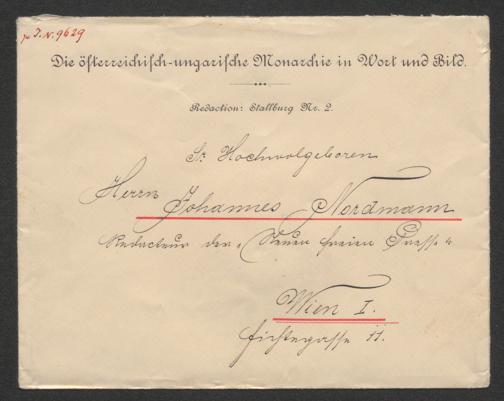 zu J. N. 9629
Die österreichisch-ungarische Monarchie in Wort und Bild.
Redaction: Stallburg Nr. 2.
Sr. Hochwolgeboren
Herrn
Johannes Nordmann
Redacteur der „Neuen freien Presse“
Wien I.
Fichtegasse 11.